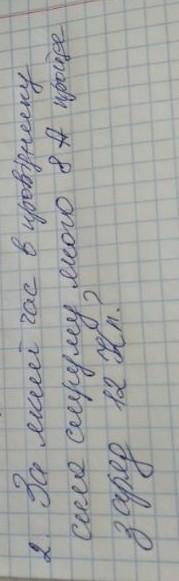 2. За який час в провіднику
сила струму якого 8 А пройде
заряд 12 Кл.?